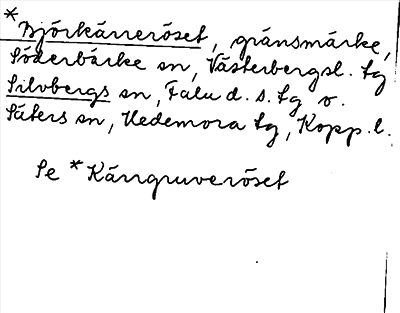 *Björkärreröset, gränsmärke,
Söderbärke sn, Västerbergsl. tg
Silvbergs sn, Falu d. s. tg o.
Säters sn, Hedemora tg, Kopp. l.
Se *Kärrgruveröset